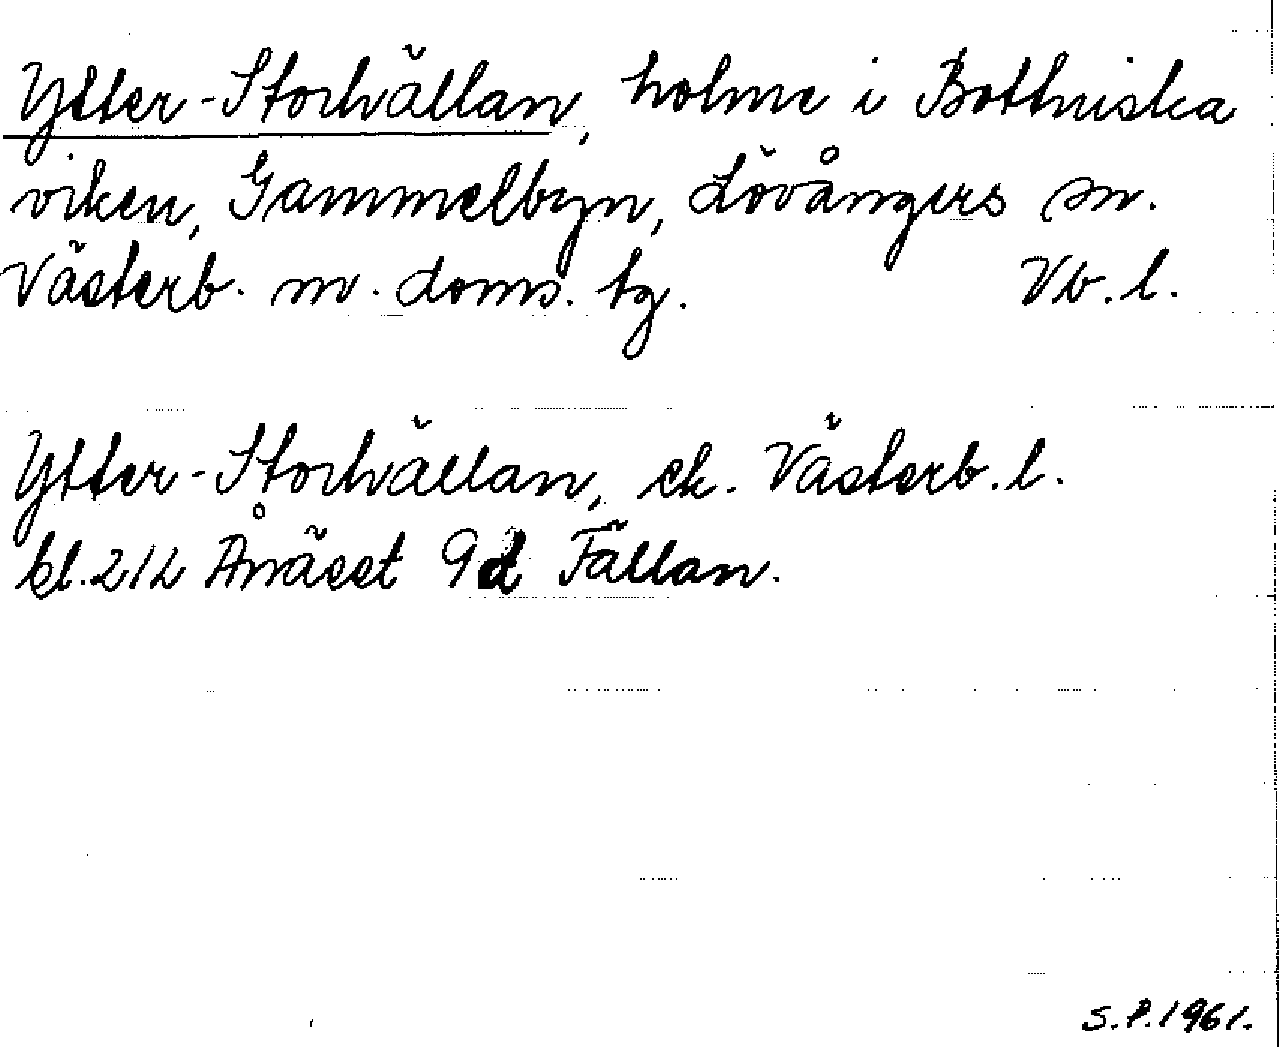 Ytter-Storhällan, holme i Bottniska
viken, Gammelbyn, Lövångers sn.
Västerb. m. doms. tg. Vb. l.
Ytter-Storhällan, ek. Västerb. l.
bl. 212 Ånäset 9d Fällan.
S.P. 1961.